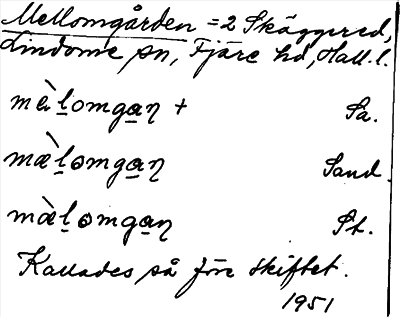 Mellomgården = 2 Skäggered,
Lindome sn, Fjäre hd, Hall. l.
mæ̀l̠omga̠ƞ + Sa.
mæ̀l̠ɵmga̠ƞ Sand.
mæ̀l̠ɵmga̠ƞ St.
Kallades så före skiftet.
1951